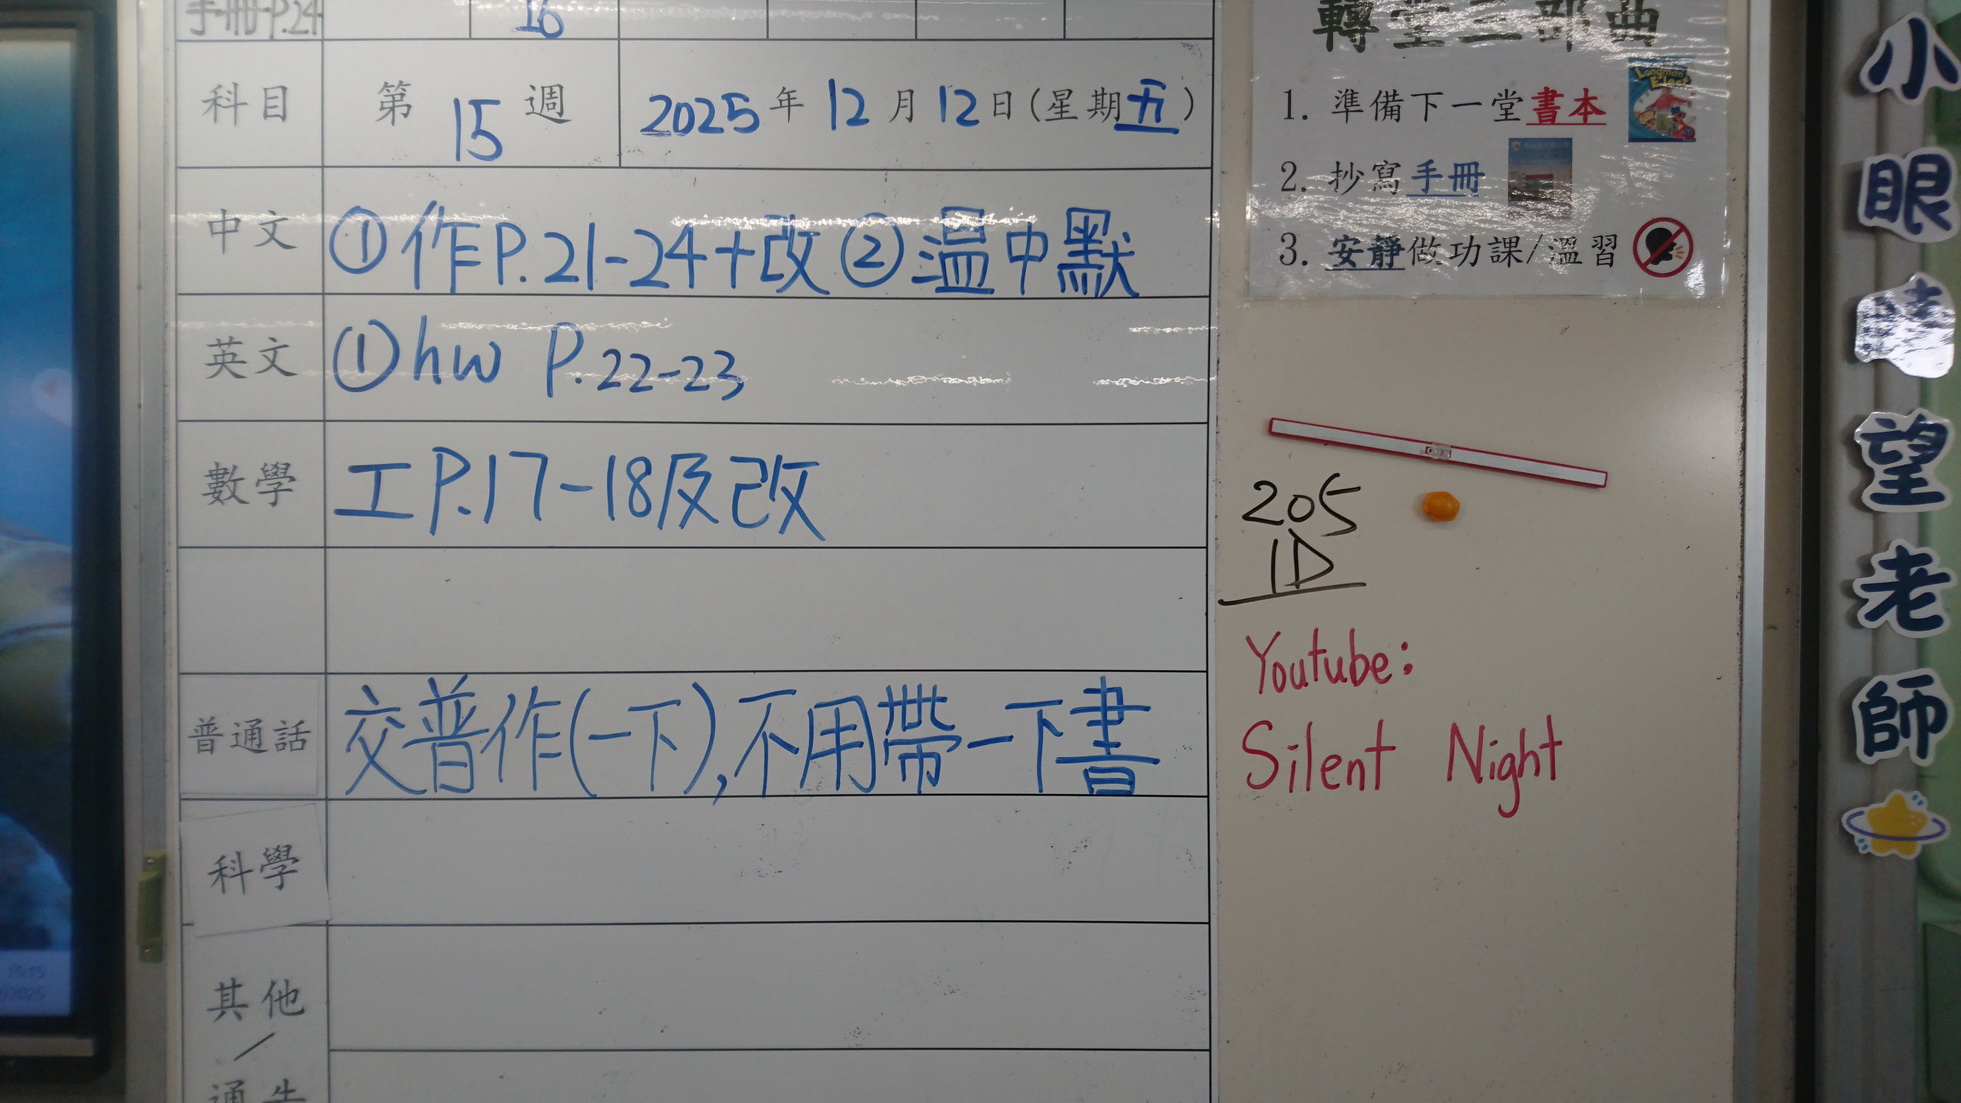 手冊P.24 16
科目 第15週 2025年12月12日(星期五)
中文 ①作P.21-24+改 ②溫中默
英文 ①hw P.22-23
數學 工P.17-18及改
普通話 交普作(一下),不用帶一下書
科學
其他
/
通告
轉堂三部曲
1. 準備下一堂書本
2. 抄寫手冊
3. 安靜做功課/溫習
205
1D
Youtube:
Silent Night
小眼睛望老師
15:15